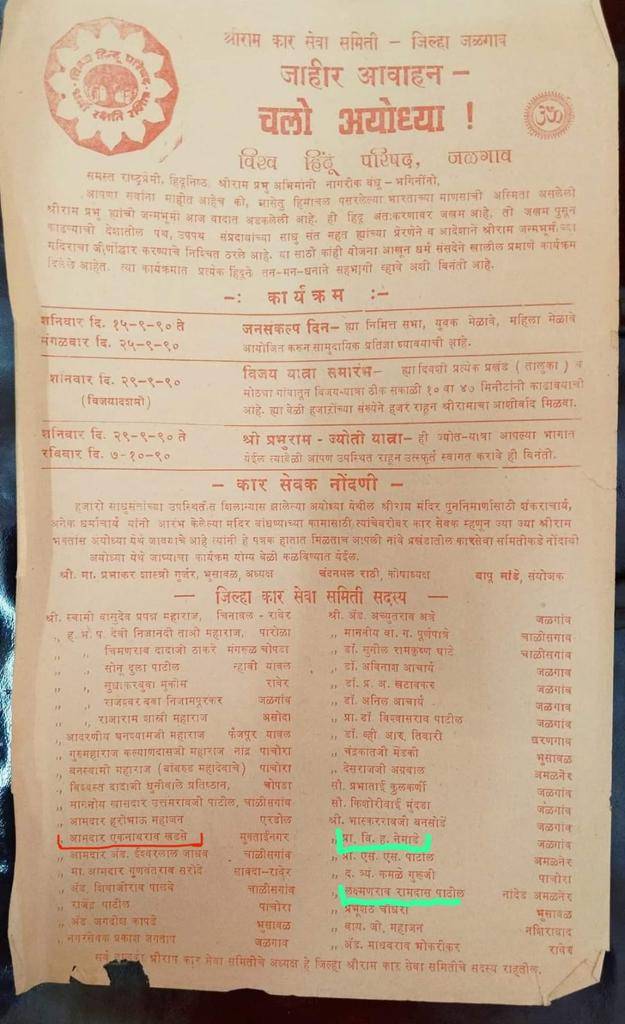 श्रीराम कार सेवा समिती – जिल्हा जळगाव
जाहीर आवाहन –
चलो अयोध्या !
विश्व हिंदू परिषद, जळगाव
समस्त राष्ट्रप्रेमी, हिंदूनिष्ठ, श्रीराम प्रभु अभिमानी नागरीक बंधु – भगिनींनो,
आपणा सर्वांना माहीत आहेच की, आसेतु हिमाचल पसरलेल्या भारताच्या माणसाची अस्मिता असलेली
श्रीराम प्रभु ह्यांची जन्मभुमी आज वादात अडकलेली आहे. ही हिंदु अंतःकरणावर जखम आहे. ती जखम पुसून
काढण्याची देशातील पंथ, उपपंथ संप्रदायांच्या साधु संत महंत ह्यांच्या प्रेरणेने व आदेशाने श्रीराम जन्मभूमीच्या
मंदिराचा जीर्णोद्धार करण्याचे निश्चित ठरले आहे. या साठी कांही योजना आखून धर्म संसदेने खालील प्रमाणे कार्यक्रम
दिलेले आहेत. त्या कार्यक्रमात प्रत्येक हिंदूने तन-मन-धनाने सहभागी व्हावे अशी विनंती आहे.
–: कार्यक्रम :–
शनिवार दि. १५-९-९० ते जनसंकल्प दिन– ह्या निमित्त सभा, युवक मेळावे, महिला मेळावे
मंगळवार दि. २५-९-९० आयोजित करुन सामुदायिक प्रतिज्ञा घ्यावयाची आहे.
शनिवार दि. २९-९-९० विजय यात्रा समारंभ– ह्या दिवशी प्रत्येक प्रखंड ( तालुका ) व
(विजयादशमी) मोठ्या गांवातून विजय-यात्रा ठीक सकाळी १० वा ४७ मिनीटांनी काढावयाची
आहे. ह्या वेळी हजारोंच्या संख्येने हजर राहून श्रीरामाचा आशीर्वाद मिळवा.
शनिवार दि. २९-९-९० ते श्री प्रभुराम - ज्योती यात्रा– ही ज्योत-यात्रा आपल्या भागात
रविवार दि. ७-१०-९० येईल त्यावेळी आपण उपस्थित राहून उत्स्फूर्त स्वागत करावे ही विनंती.
– कार सेवक नोंदणी –
हजारो साधुसंतांच्या उपस्थितीत शिलान्यास झालेल्या अयोध्या येथील श्रीराम मंदिर पुननिर्माणासाठी शंकराचार्य,
अनेक धर्माचार्य यांनी आरंभ केलेल्या मंदिर बांधण्याच्या कामासाठी त्यांचेबरोबर कार सेवक म्हणून ज्या ज्या श्रीराम
भक्तांस अयोध्या येथे जावयाचे आहे त्यांनी हे पत्रक हातात मिळताच आपली नांवे प्रखंडातील कारसेवा समितीकडे नोंदावी
अयोध्या येथे जाण्याचा कार्यक्रम योग्य वेळी कळविण्यात येईल.
श्री. मा. प्रभाकर शास्त्री गुर्जर, भुसावळ, अध्यक्ष चंदनमल राठी, कोषाध्यक्ष बापू मांडे, संयोजक
— जिल्हा कार सेवा समिती सदस्य —
श्री. स्वामी वासुदेव प्रपन्न महाराज, चिनावल - रावेर
,, ह. भ. प. देवी निजानंदी ताओ महाराज, पारोळा
,, चिमणराव दादाजी ठाकरे मंगरुळ चोपडा
,, सोनू दुला पाटील न्हावी यावल
,, सुधाकरबुवा मुकीम रावेर
,, राजेश्वर बुवा निजामपूरकर जळगांव
,, राजाराम शास्त्री महाराज असोदा
,, आदरणीय घनश्यामजी महाराज फैजपूर यावल
,, गुरुमहाराज कल्याणदासजी महाराज नांद्र पाचोरा
,, बनस्वामी महाराज (बांबरुड महादेवाचे) पाचोरा
,, विश्वस्त दादाजी धुनीवाले प्रतिष्ठान, चोपडा
,, माननीय खासदार उत्तमरावजी पाटील, चाळीसगांव
,, आमदार हरीभाऊ महाजन एरंडोल
,, आमदार एकनाथराव खडसे मुक्ताईनगर
,, आमदार अॅड. ईश्वरलाल जाधव चाळीसगांव
,, मा. आमदार गुणवंतराव सरोदे सावदा-रावेर
,, अॅड शिवाजीराव पालवे चाळीसगांव
,, राजेंद्र पाटील पाचोरा
,, अॅड जगदीश कापडे भुसावळ
,, नगरसेवक प्रकाश जगताप जळगाव
श्री. अॅड. अच्युतराव अत्रे जळगांव
,, माननीय वा. ग. पूर्णपात्रे चाळीसगांव
,, डॉ. सुनील रामकृष्ण घाटे चाळीसगांव
,, डॉ. अविनाश आचार्य जळगांव
,, डॉ. प्र. अ. खटावकर जळगांव
,, डॉ. अनिल आचार्य जळगांव
,, प्रा. डॉ. विश्वासराव पाटील जळगांव
,, डॉ. व्ही. आर. तिवारी धरणगांव
,, चंद्रकांतजी मेंडकी भुसावळ
,, देसराजजी अग्रवाल अमळनेर
सौ. प्रभाताई कुलकर्णी जळगांव
सौ. किशोरीबाई मुंदडा जळगांव
श्री. भास्करराबजी बनसोडे जळगांव
,, प्रा. वि. ह. नेमाडे जळगांव
,, प्रा. एस. एस. पाटील अमळनेर
,, द. त्र्यं. कमळे गुरुजी पाचोरा
,, लक्ष्मणराव रामदास पाटील नांदेड अमळनेर
,, प्रभूशेठ चौधरी भुसावळ
,, वाय. जो. महाजन नशिराबाद
,, अॅड. माधवराव भोकरीकर रावेर
सर्व श्रीराम कार सेवा समितीचे अध्यक्ष हे जिल्हा श्रीराम कार सेवा समितीचे सदस्य राहतील.